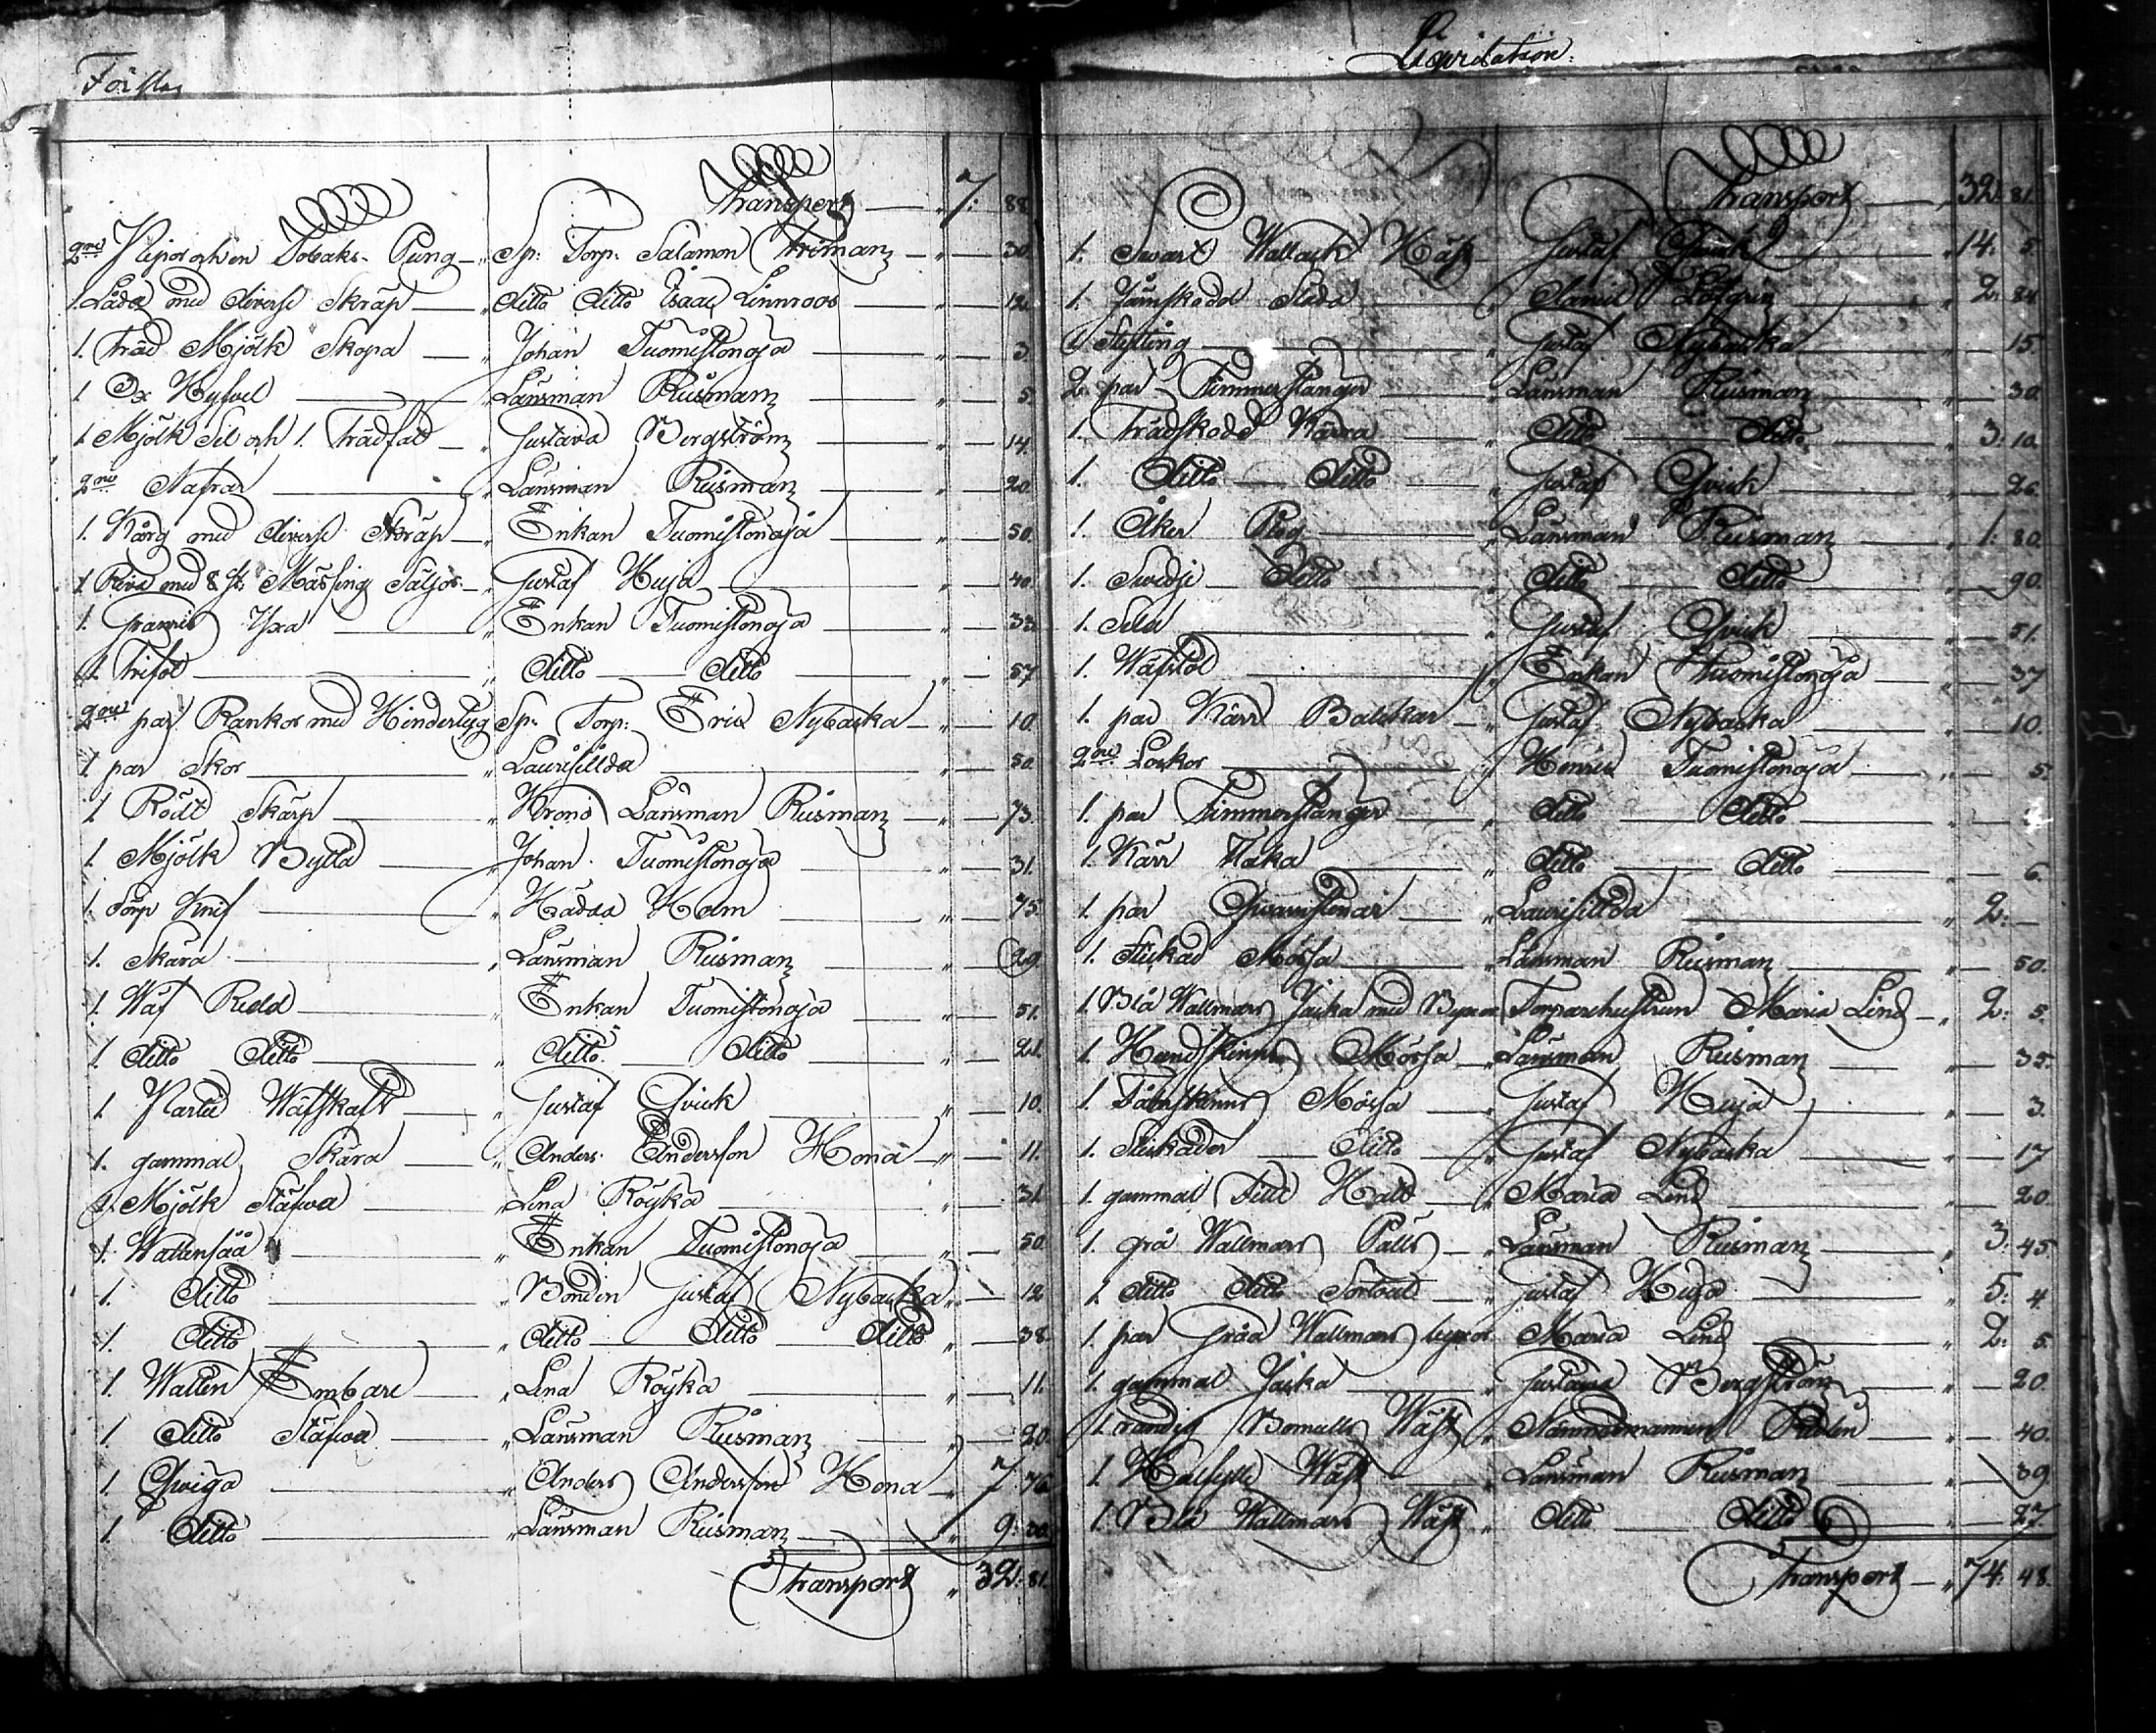 Liqvidation.
Transport — " 7: 88.
2ne Pipor och en Tobaks Pung — " Sp: Torp: Salamon Friman — " — 30.
1. Låda med diverse Skräp — " ditto ditto Isaac Linnroos — " — 12.
1. Träd Mjölk Skopa — " Johan Tuomistonoja — " — 3.
1 Ox Hyfvel — " Länsman Riisman — " — 5.
1. Mjölk Sil och 1. Trädfat — " Gustava Bergström — " — 14.
2ne Nafrar — " Länsman Riisman — " — 20.
1. Kårg med diverse Skräp — " Enkan Tuomistonoja — " — 50.
1. Rem med 8 st. Mässing Säljor — " Gustaf Huja — " — 40.
1. Yxa — " Enkan Tuomistonoja — " — 33.
1. Trifot — " ditto — ditto — " — 57.
2ne par Rankor med Hindertyg Sp: Torp: Eric Nybacka — " — 10.
1. par Skor — " Laurisillda — " — 50.
1 Rödt Skärp — " Krono Länsman Riisman — " — 73.
1. Mjölk Bytta — " Johan Tuomistonoja — " — 31.
1. Knif — " Hedda Holm — " — 75.
1. Skära — " Länsman Riisman — " — 29.
1. Wäf Redd — " Enkan Tuomistonoja — " — 51.
1 ditto ditto — " ditto — ditto — " — 21.
1 Partie Wäfskaft — " Gustaf Qvick — " — 10.
1. gammal Skära — " Anders Andersson Hona — " — 11.
1. Mjölk Stäfwa — " Lena Röykä — " — 31.
1. Watensåå — " Enkan Tuomistonoja — " — 50.
1. ditto — " Bonden Gustaf Nybacka — " — 12.
1. ditto — " ditto — ditto — ditto " — 38.
1. Watten Embare — " Lena Röyka — " — 11.
1 ditto Stäfwa — " Länsman Riisman — " — 20.
1 Qwiga — " Anders Andersson Hona — " 7: 76.
1. ditto — " Länsman Riisman — " 9:
Transport " 32: 81.
Transport — " 32: 81.
1. Swart Wallack Häst — Gustaf Qwick — " 14: 5.
1. Järnskodd Släda — " Daniel Löfgrén — " 2: 84.
1 — " Gustaf Nybacka — " — 15.
2. par Timmerstänger — " Länsman Riisman — " — 30.
1. Trädskodd Kärra — " ditto — ditto — " 3: 10.
1. ditto — ditto — " Gustaf Qvick — " — 26.
1. Åker Plog — " Länsman Riisman — " 1: 80.
1. Swedje ditto — " ditto — ditto — " — 90.
1. Sela — " Gustaf Qvick — " — 51.
1. Wäfstol — " Enkan Tuomistonoja — " — 37
1. par Kärr — " Gustaf Nybacka — " — 10.
2ne — " Henric Tuomistonoja — " — 5.
1. par Timmerstänger — " ditto — ditto — "
1. Kärr Haka — " ditto — ditto — " — 6.
1. par Qwarnstenar — " Laurisillda — " 2: —
1. Stickad Mössa — " Länsman Riisman — " — 50.
1. Blå Wallmars Jacka med Byxor Torparehustrun Maria Lind — " 2: 5.
1. Hundskinns Mössa — " Länsman Riisman — " — 35.
1. Fårskinns Mössa — " Gustaf Huja — " — 3.
1. Stickader — ditto — " Gustaf Nybacka — " — 17
1. gammal Filt Hatt — " Maria Lind — " — 20.
1. grå Wallmars Päls — " Länsman Riisman — " 3: 45
1. ditto ditto Sortout — " Gustaf Huja — " 5: 4.
1. par gråa Wallmars byxor Maria Lind — " 2: 5.
1. gammal Jacka — " Gustava Bergström — " — 20.
1. randig Bomulls Wäst " Nämndemannen — " — 40.
1. Halfsilk Wäst — " Länsman Riisman — " — 39
1. Blå Wallmars Wäst " ditto — ditto — " — 27.
Transport — " 74: 48.